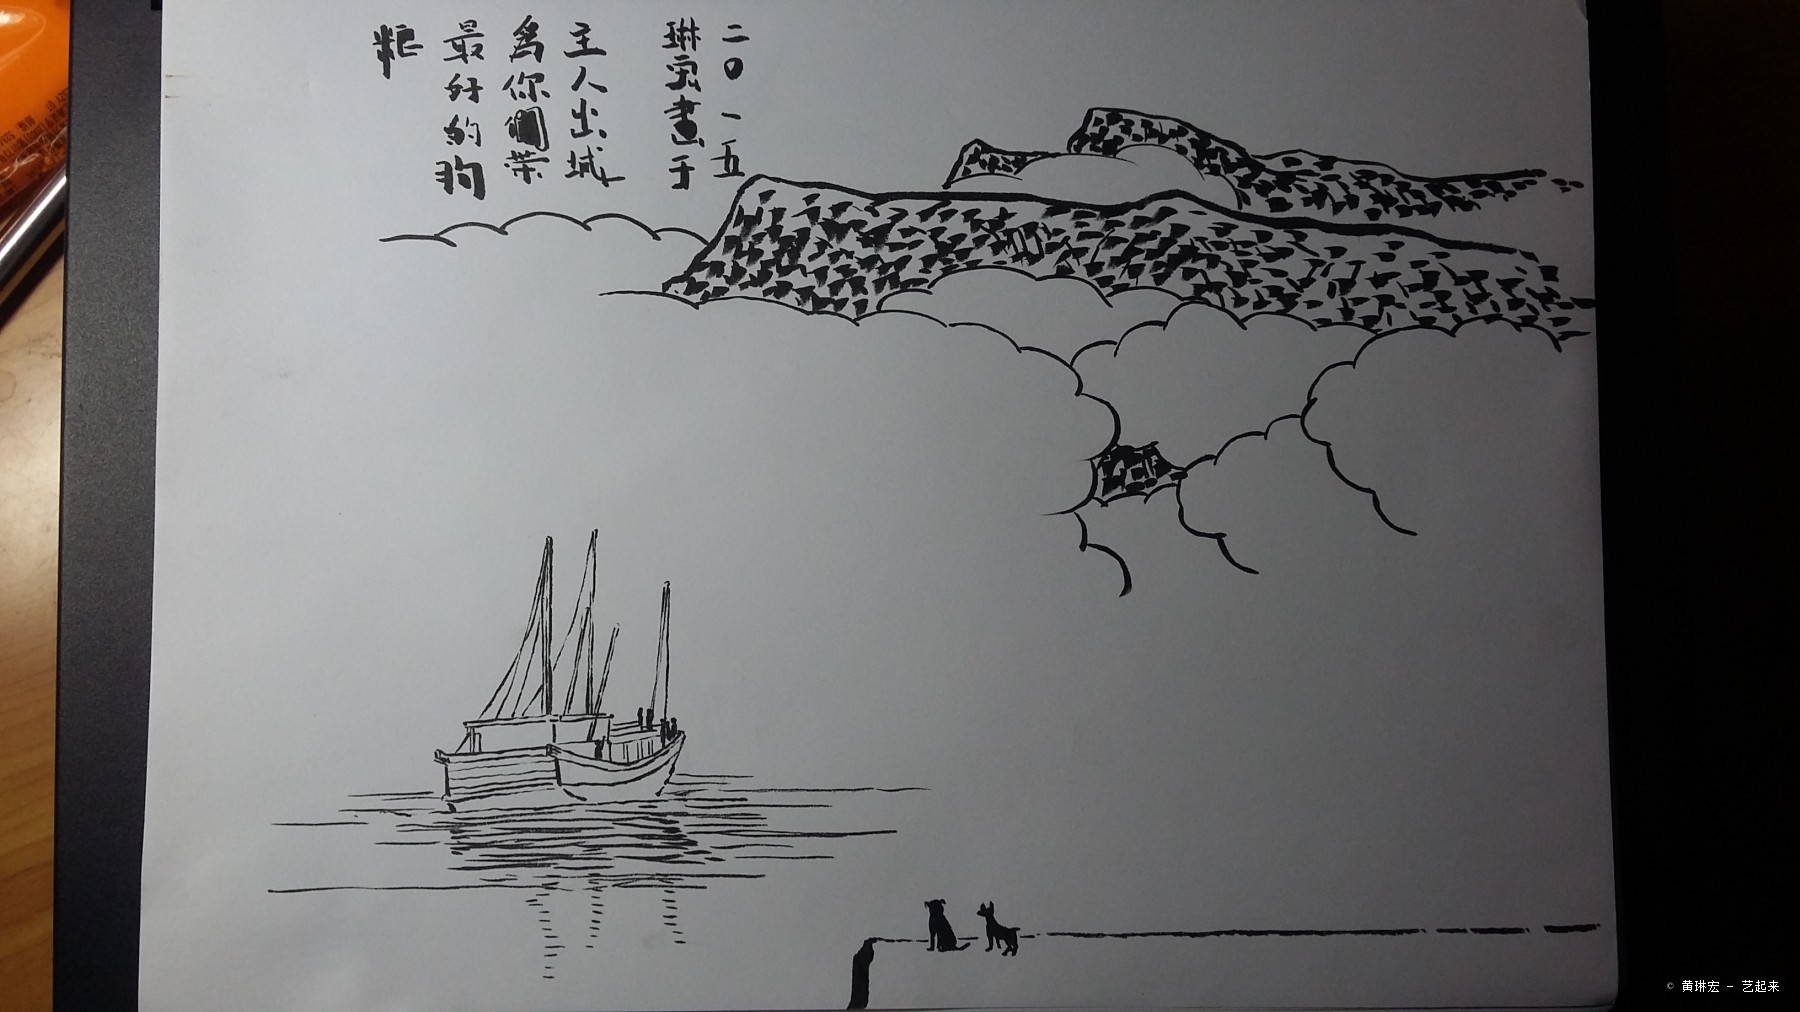 二〇一五
琳宏畫于
主人出城
為你們帶
最好的狗
粮
© 黄琳宏 - 艺起来